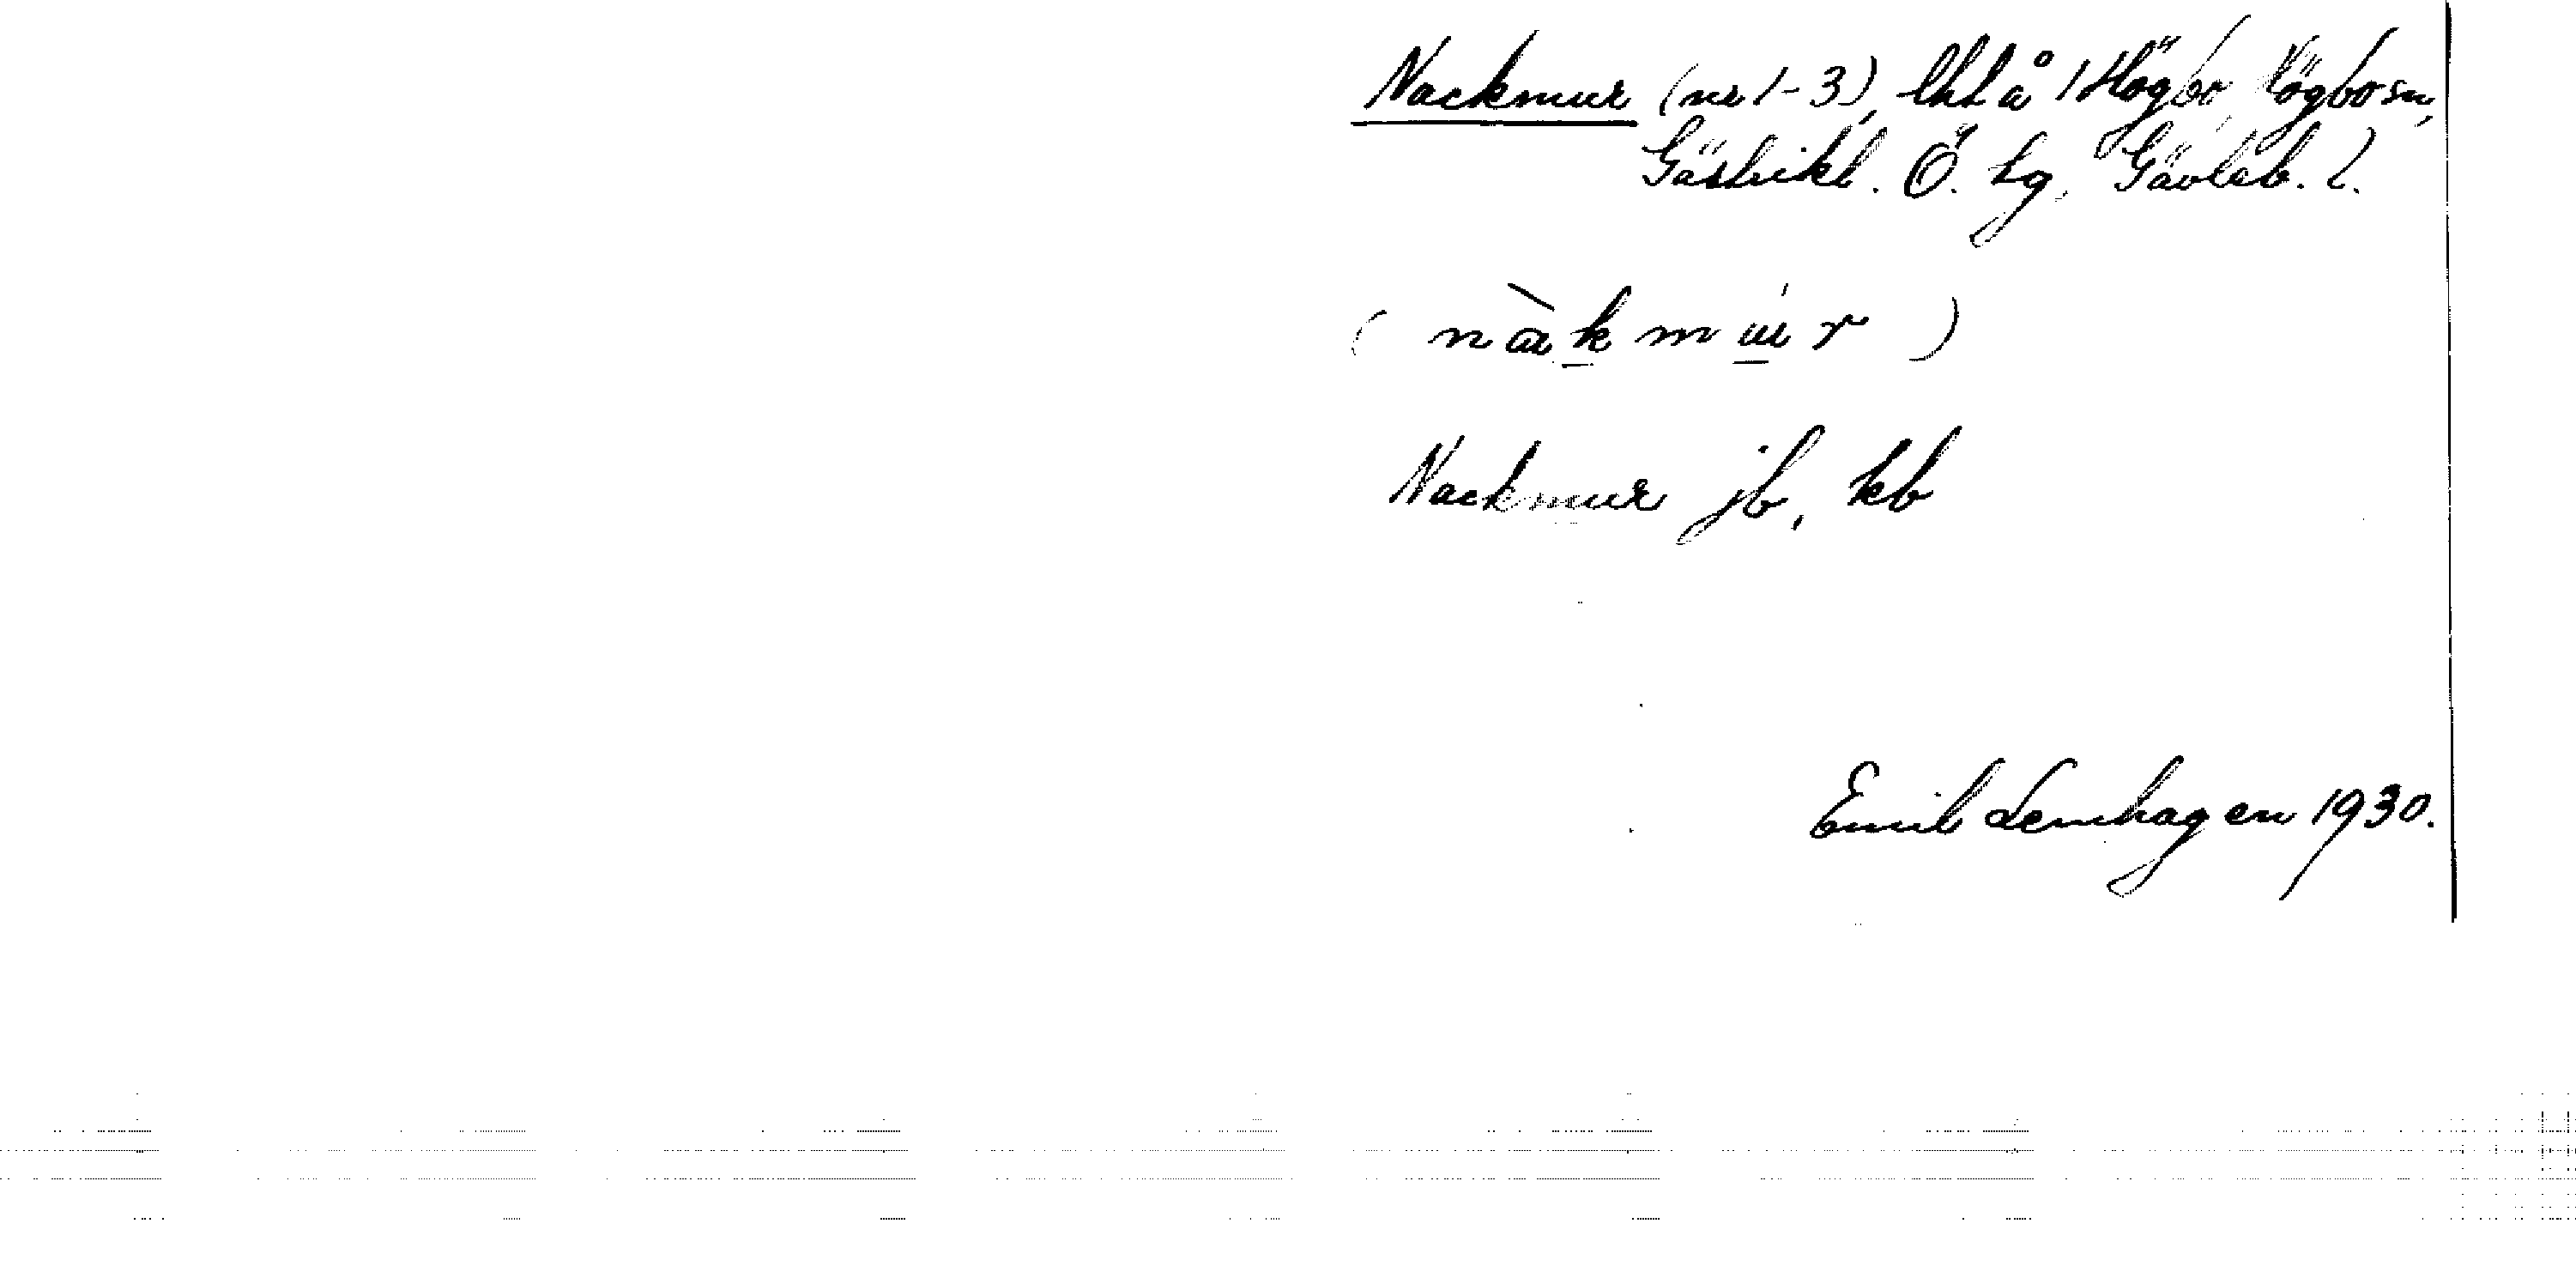 Nackmur (nr 1-3), lht å 1 Högbo, Högbo sn,
Gästrikl. Ö. tg, Gävleb. l.
(nàkmúr)
Nackmur jb, kb
Emil Lemhagen 1930.